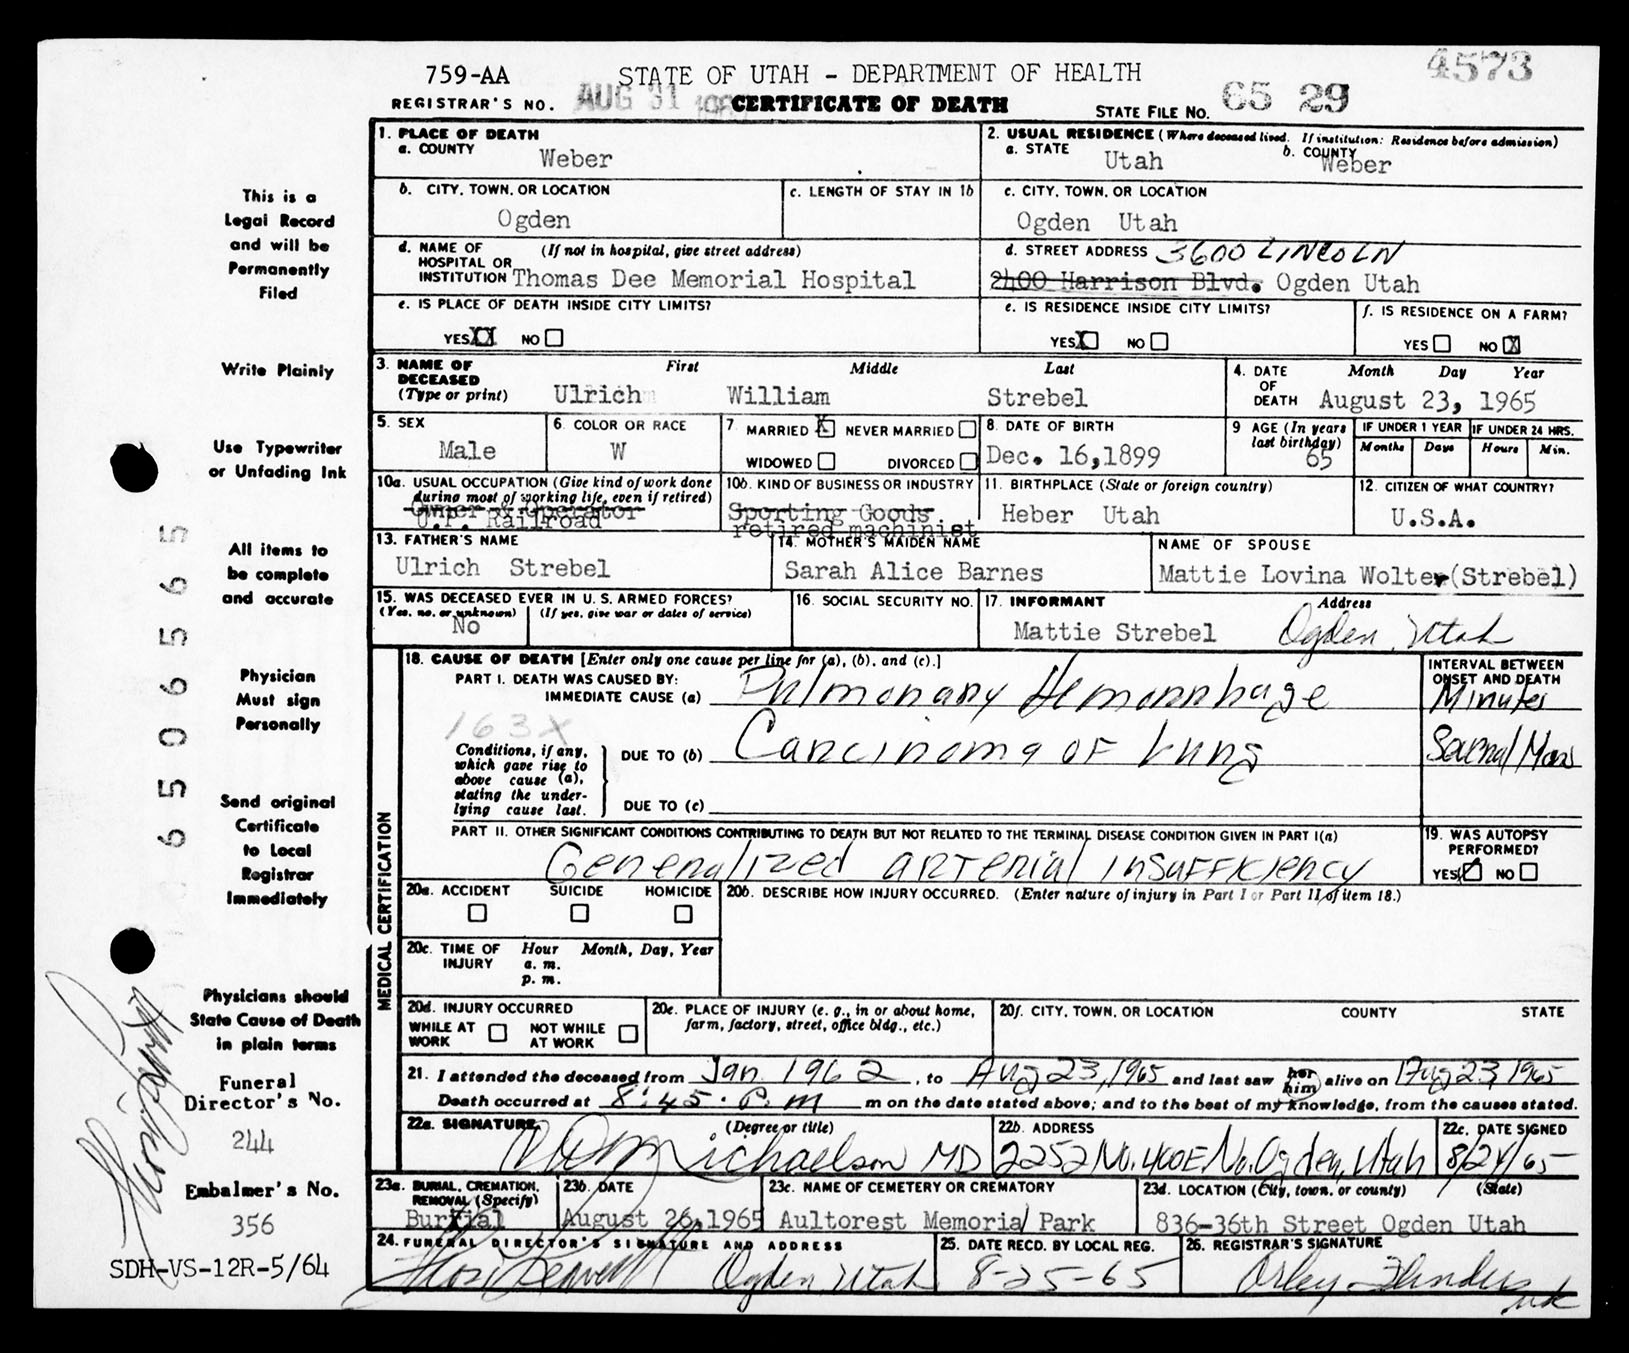 4573
759-AA STATE OF UTAH - DEPARTMENT OF HEALTH
REGISTRAR'S NO. AUG 31 CERTIFICATE OF DEATH STATE FILE NO. 65 29
1. PLACE OF DEATH
a. COUNTY Weber
2. USUAL RESIDENCE (Where deceased lived. If institution: Residence before admission)
a. STATE Utah b. COUNTY Weber
b. CITY, TOWN, OR LOCATION Ogden
c. LENGTH OF STAY IN 1b
c. CITY, TOWN, OR LOCATION Ogden Utah
d. NAME OF HOSPITAL OR INSTITUTION (If not in hospital, give street address) Thomas Dee Memorial Hospital
d. STREET ADDRESS 3600 LINCOLN
2400 Harrison Blvd. Ogden Utah
e. IS PLACE OF DEATH INSIDE CITY LIMITS?
YES X NO
e. IS RESIDENCE INSIDE CITY LIMITS?
YES X NO
f. IS RESIDENCE ON A FARM?
YES NO X
3. NAME OF DECEASED (Type or print) First Middle Last
Ulrich William Strebel
4. DATE OF DEATH Month Day Year
August 23, 1965
5. SEX Male
6. COLOR OR RACE W
7. MARRIED X NEVER MARRIED
WIDOWED DIVORCED
8. DATE OF BIRTH Dec. 16,1899
9 AGE (In years last birthday) 65
IF UNDER 1 YEAR Months Days
IF UNDER 24 HRS. Hours Min.
10a. USUAL OCCUPATION (Give kind of work done during most of working life, even if retired)
Owner & Operator
U.P. Railroad
10b. KIND OF BUSINESS OR INDUSTRY
Sporting Goods
retired machinist
11. BIRTHPLACE (State or foreign country) Heber Utah
12. CITIZEN OF WHAT COUNTRY? U.S.A.
13. FATHER'S NAME Ulrich Strebel
14. MOTHER'S MAIDEN NAME Sarah Alice Barnes
NAME OF SPOUSE Mattie Lovina Wolter(Strebel)
15. WAS DECEASED EVER IN U.S. ARMED FORCES?
(Yes, no, or unknown) (If yes, give war or dates of service)
No
16. SOCIAL SECURITY NO.
17. INFORMANT Address
Mattie Strebel Ogden, Utah
18. CAUSE OF DEATH [Enter only one cause per line for (a), (b), and (c).]
INTERVAL BETWEEN ONSET AND DEATH
PART I. DEATH WAS CAUSED BY:
IMMEDIATE CAUSE (a) Pulmonary Hemorrhage Minutes
163X
Conditions, if any, which gave rise to above cause (a), stating the underlying cause last.
DUE TO (b) Carcinoma OF Lung Several Mos
DUE TO (c)
PART II. OTHER SIGNIFICANT CONDITIONS CONTRIBUTING TO DEATH BUT NOT RELATED TO THE TERMINAL DISEASE CONDITION GIVEN IN PART I(a)
Generalized arterial insufficiency
19. WAS AUTOPSY PERFORMED?
YES NO
20a. ACCIDENT SUICIDE HOMICIDE
20b. DESCRIBE HOW INJURY OCCURRED. (Enter nature of injury in Part I or Part II of item 18.)
20c. TIME OF INJURY Hour Month, Day, Year
a. m.
p. m.
20d. INJURY OCCURRED
WHILE AT WORK NOT WHILE AT WORK
20e. PLACE OF INJURY (e. g., in or about home, farm, factory, street, office bldg., etc.)
20f. CITY, TOWN, OR LOCATION COUNTY STATE
MEDICAL CERTIFICATION
21. I attended the deceased from Jan 1962, to Aug 23, 1965 and last saw her him alive on Aug 23, 1965
Death occurred at 8:45 P.m m on the date stated above; and to the best of my knowledge, from the causes stated.
22a. SIGNATURE (Degree or title)
Michaelson MD
22b. ADDRESS 2252 No. 400E No. Ogden, Utah
22c. DATE SIGNED 8/24/65
23a. BURIAL, CREMATION, REMOVAL (Specify) Burial
23b. DATE August 26, 1965
23c. NAME OF CEMETERY OR CREMATORY Aultorest Memorial Park
23d. LOCATION (City, town, or county) (State)
836-36th Street Ogden Utah
24. FUNERAL DIRECTOR'S SIGNATURE AND ADDRESS
Ogden, Utah
25. DATE RECD. BY LOCAL REG. 8-25-65
26. REGISTRAR'S SIGNATURE
This is a
Legal Record
and will be
Permanently
Filed
Write Plainly
Use Typewriter
or Unfading Ink
All items to
be complete
and accurate
Physician
Must sign
Personally
Send original
Certificate
to Local
Registrar
Immediately
Physicians should
State Cause of Death
in plain terms
Funeral
Director's No.
244
Embalmer's No.
356
SDH-VS-12R-5/64